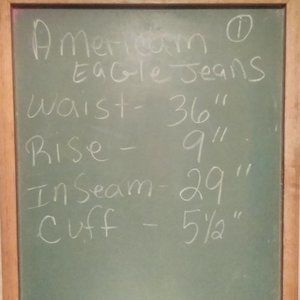 American ①
Eagle Jeans
Waist - 36"
Rise - 9"
Inseam - 29"
Cuff - 5½"